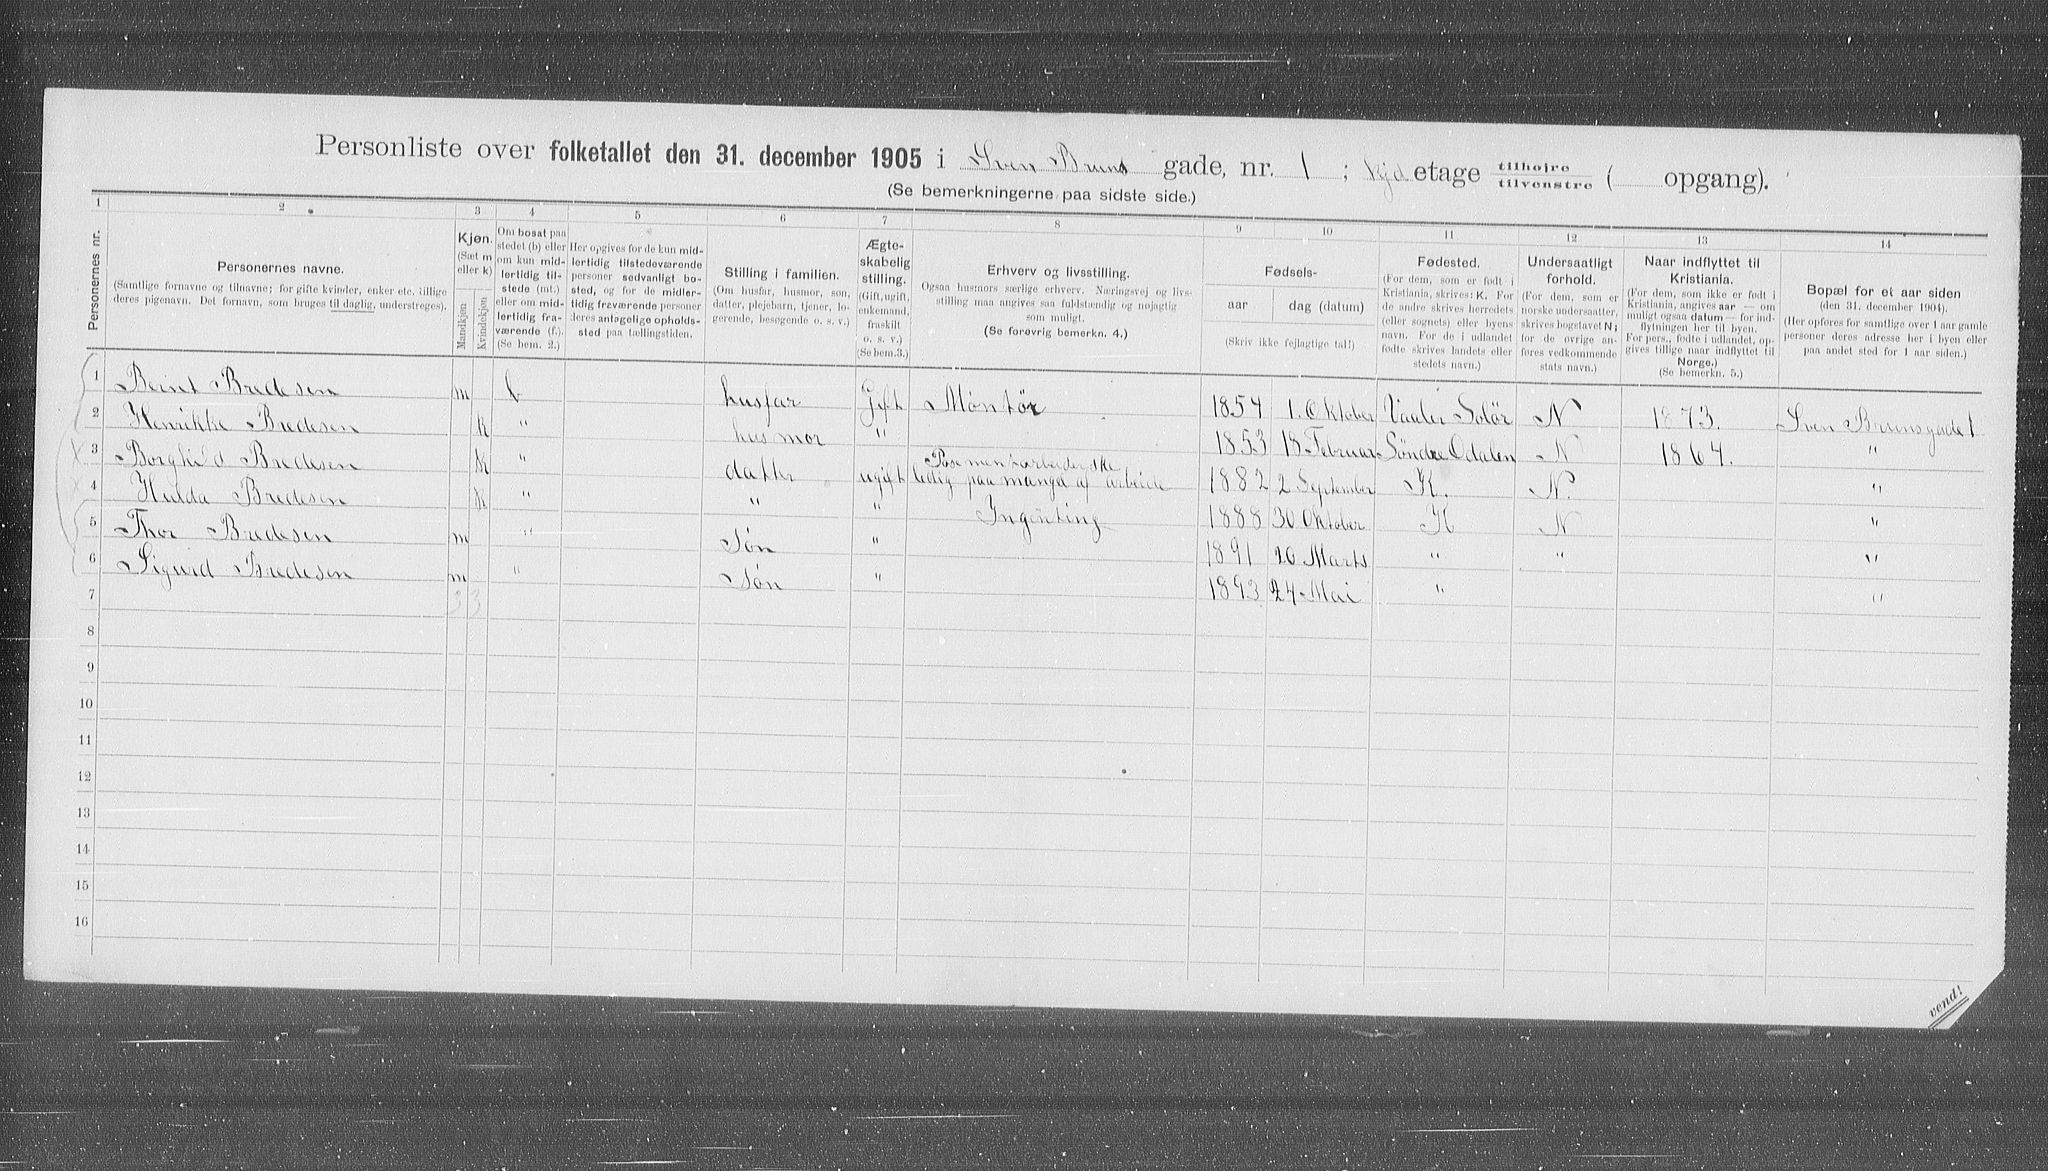 Personliste over folketallet den 31. december 1905 i Sven Bruns gade, nr. 1 ; etage tilhøire tilvenstre ( opgang).
(Se bemerkningerne paa sidste side.)
1 2 3 4 5 6 7 8 9 10 11 12 13 14
Personernes nr.
Personernes navne.
(Samtlige fornavne og tilnavne; for gifte kvinder, enker etc. tillige
deres pigenavn. Det fornavn, som bruges til daglig, understreges).
Kjøn.
(Sæt m
eller k)
Mandkjøn
Kvindekjøn
Om bosat paa
stedet (b) eller
om kun mid-
lertidig til-
stede (mt.)
eller om mid-
lertidig fra-
værende (f.).
(Se bem. 2.)
Her opgives for de kun mid-
lertidig tilstedeværende
personer sedvanligt bo-
sted, og for de midler-
tidig fraværende personer
deres antagelige opholds-
sted paa tællingstiden.
Stilling i familien.
(Om husfar, husmor, søn,
datter, plejebarn, tjener, lo-
gerende, besøgende o. s. v.)
Ægte-
skabelig
stilling.
(Gift, ugift,
enkemand,
fraskilt
o. s. v.)
(Se bem. 3.)
Erhverv og livsstilling.
Ogsaa husmors særlige erhverv. Næringsvej og livs-
stilling maa angives saa fuldstændig og nøjagtig
som muligt.
(Se forøvrig bemerkn. 4.)
Fødsels-
aar
dag (datum)
(Skriv ikke fejlagtige tal!)
Fødested.
(For dem, som er født i
Kristiania, skrives: K. For
de andre skrives herredets
(eller sognets) eller byens
navn. For de i udlandet
fødte skrives landets eller
stedets navn.)
Undersaatligt
forhold.
(For dem, som er
norske undersaatter,
skrives bogstavet N;
for de øvrige an-
føres vedkommende
stats navn.)
Naar indflyttet til
Kristiania.
(For dem, som ikke er født i
Kristiania, angives aar — om
muligt ogsaa datum — for ind-
flytningen her til byen.
For pers., fødte i udlandet, op-
gives tillige naar indflyttet til
Norge.)
(Se bemerkn. 5.)
Bopæl for et aar siden
(den 31. december 1904).
(Her opføres for samtlige over 1 aar gamle
personer deres adresse her i byen eller
paa andet sted for 1 aar siden.)
1 Bernt Bredesen m b husfar Gift Montør 1854 1. Oktober Vaaler Solør N 1873. Sven Brunsgade 1
2 Henrikke Bredesen K " husmor " 1853 18 Februar Søndre Odalen N 1864. "
3 Borghild Bredesen K " datter ugift Posementarbeiderske ledig paa mangel af arbeide 1882 2 September K. N. "
4 Hulda Bredesen K " " " Ingenting 1888 30 Oktober K N "
5 Thor Bredesen m " Søn " 1891 20 Marts " " "
6 Sigurd Bredesen m " Søn " 1893 24 Mai " "
7 3 3
8
9
10
11
12
13
14
15
16
vend!